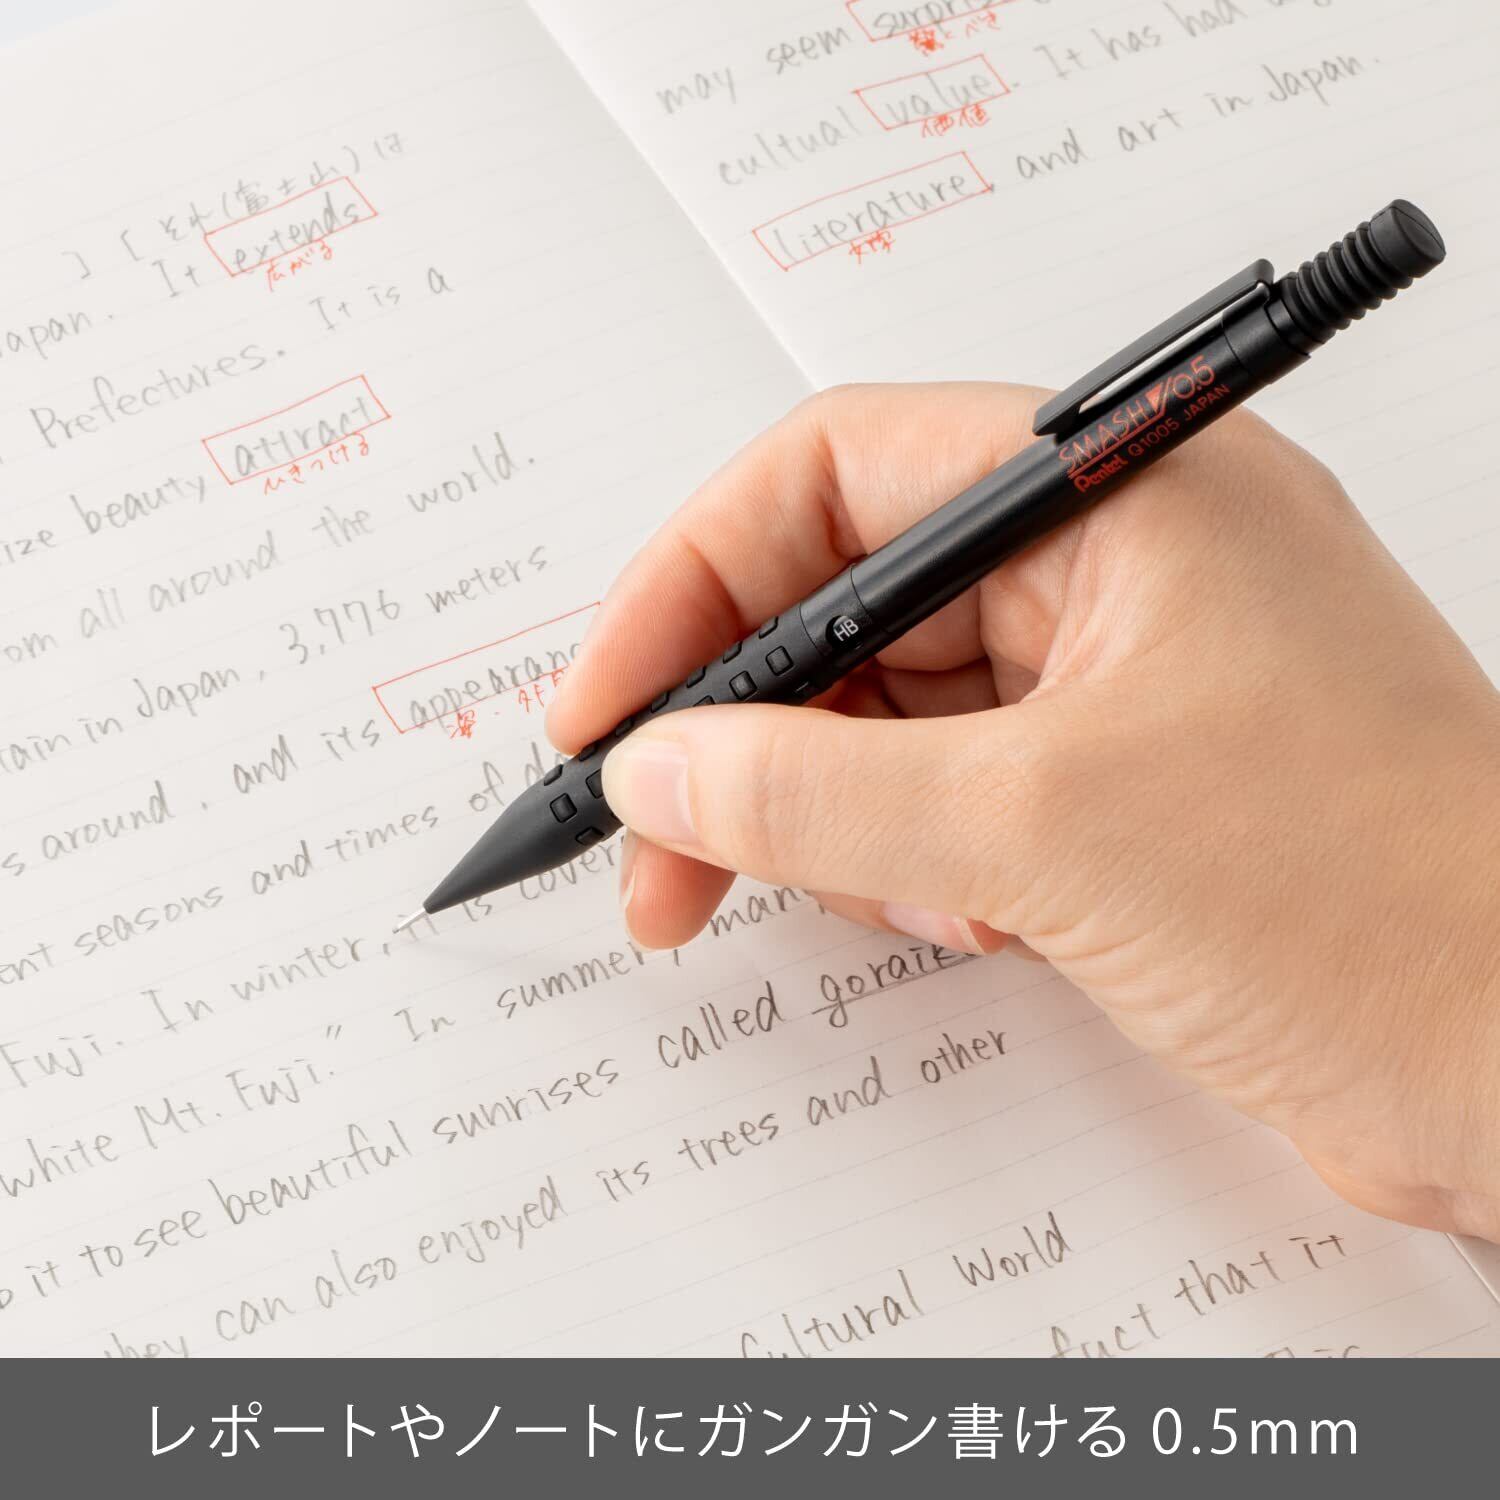 ] [ それ(富士山)は
apan. It extends
広がる
Prefectures. It is a
ize beauty attract
ひきつける
om all around the world.
tain in Japan, 3,776 meters
s around, and its appearanc
姿・外見
ent seasons and times of da
Fuji. In winter, it is cover
white Mt. Fuji." In summer, many
o it to see beautiful sunrises called goraik
hey can also enjoyed its trees and other
may seem surpris
驚くべき
cultual value. It has had
価値
literature, and art in Japan.
文学
Cultural World
fuct that it
This
SMASH 0.5
Pentel Q1005 JAPAN
HB
レポートやノートにガンガン書ける 0.5mm